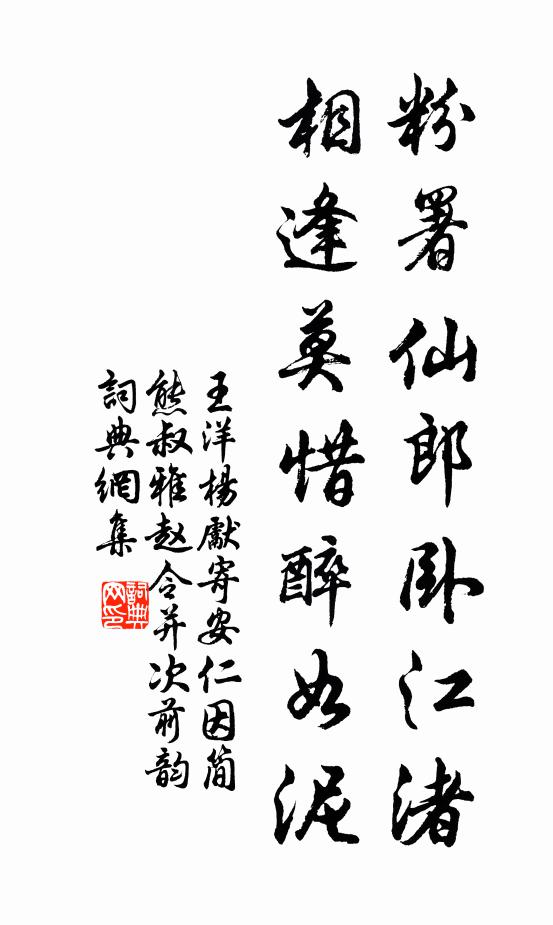 粉署仙郎卧江渚
相逢莫惜醉如泥
王洋楊獻寄安仁因簡
熊叔雅赵令并次前韵
詞典網集
詞典
网印